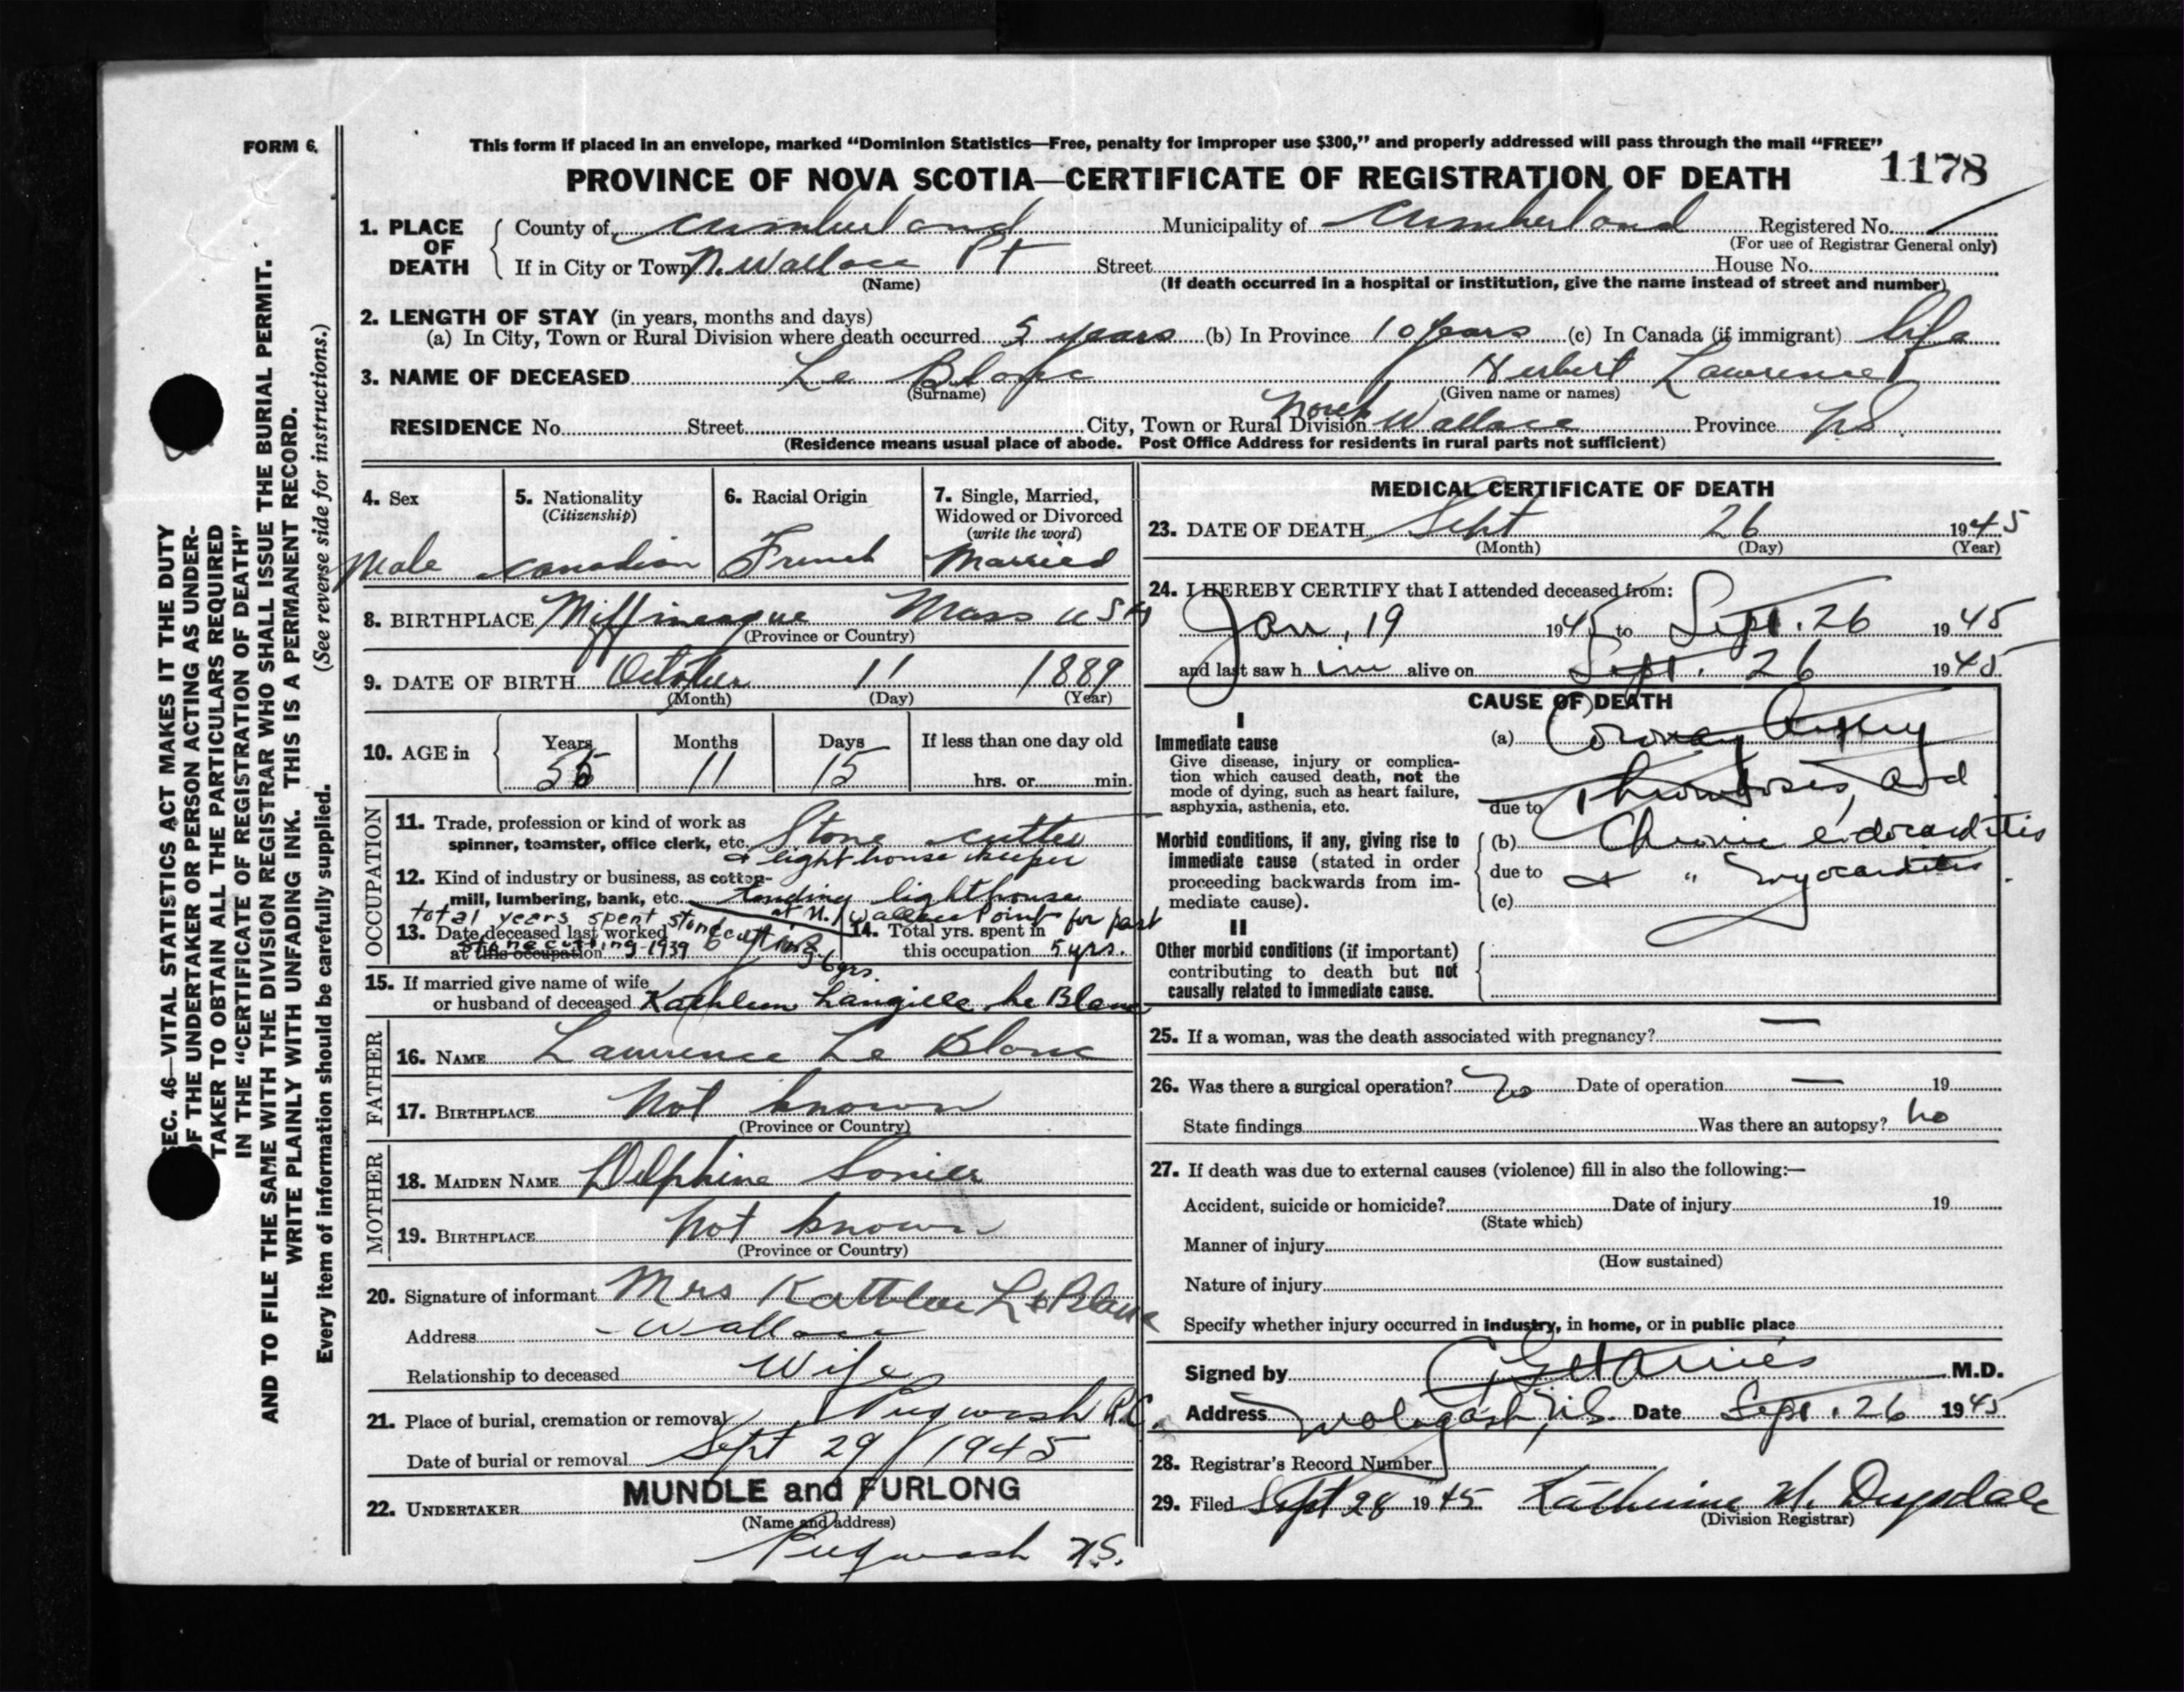 FORM 6.
This form if placed in an envelope, marked “Dominion Statistics—Free, penalty for improper use $300,” and properly addressed will pass through the mail “FREE”
PROVINCE OF NOVA SCOTIA—CERTIFICATE OF REGISTRATION OF DEATH
1178
1. PLACE OF DEATH
County of Cumberland Municipality of Cumberland Registered No.
(For use of Registrar General only)
If in City or Town N. Wallace Pt Street House No.
(Name) (If death occurred in a hospital or institution, give the name instead of street and number)
2. LENGTH OF STAY (in years, months and days)
(a) In City, Town or Rural Division where death occurred 5 years (b) In Province 10 years (c) In Canada (if immigrant) life
3. NAME OF DECEASED Le Blanc Herbert Lawrence
(Surname) (Given name or names)
RESIDENCE No. Street City, Town or Rural Division North Wallace Province N.S.
(Residence means usual place of abode. Post Office Address for residents in rural parts not sufficient)
4. Sex
Male
5. Nationality
(Citizenship)
Canadian
6. Racial Origin
French
7. Single, Married,
Widowed or Divorced
(write the word)
Married
8. BIRTHPLACE Mass USA
(Province or Country)
9. DATE OF BIRTH October 11 1889
(Month) (Day) (Year)
10. AGE in
Years Months Days If less than one day old
55 11 15 hrs. or min.
OCCUPATION
11. Trade, profession or kind of work as
spinner, teamster, office clerk, etc. Stone cutter
& light house keeper
12. Kind of industry or business, as cotton-
mill, lumbering, bank, etc. tending lighthouse
at N. Wallace Point for past
total years spent stone cutting
13. Date deceased last worked
at this occupation
stone cutting 1939
36 yrs.
14. Total yrs. spent in
this occupation 5 yrs.
15. If married give name of wife
or husband of deceased Kathleen Langille Le Blanc
FATHER
16. NAME Lawrence Le Blanc
17. BIRTHPLACE Not known
(Province or Country)
MOTHER
18. MAIDEN NAME Delphine Sonier
19. BIRTHPLACE Not known
(Province or Country)
20. Signature of informant Mrs Kathleen LeBlanc
Address Wallace
Relationship to deceased Wife
21. Place of burial, cremation or removal Pugwash R.C.
Date of burial or removal Sept 29 1945
22. UNDERTAKER MUNDLE and FURLONG
(Name and address)
Pugwash N.S.
MEDICAL CERTIFICATE OF DEATH
23. DATE OF DEATH Sept 26 1945
(Month) (Day) (Year)
24. I HEREBY CERTIFY that I attended deceased from:
Jan. 19 1945 to Sept. 26 1945
and last saw him alive on Sept. 26 1945
CAUSE OF DEATH
I
Immediate cause
Give disease, injury or complica-
tion which caused death, not the
mode of dying, such as heart failure,
asphyxia, asthenia, etc.
Morbid conditions, if any, giving rise to
immediate cause (stated in order
proceeding backwards from im-
mediate cause).
II
Other morbid conditions (if important)
contributing to death but not
causally related to immediate cause.
(a) Coronary Artery
due to Thrombosis, and
(b) Chronic endocarditis
due to & " myocarditis.
(c)
25. If a woman, was the death associated with pregnancy? —
26. Was there a surgical operation? No Date of operation — 19
State findings Was there an autopsy? no
27. If death was due to external causes (violence) fill in also the following:—
Accident, suicide or homicide? Date of injury 19
(State which)
Manner of injury
(How sustained)
Nature of injury
Specify whether injury occurred in industry, in home, or in public place
Signed by M.D.
Address N.S. Date Sept. 26 1945
28. Registrar’s Record Number
29. Filed Sept 28 1945 Katherine M. Drysdale
(Division Registrar)
SEC. 46—VITAL STATISTICS ACT MAKES IT THE DUTY
OF THE UNDERTAKER OR PERSON ACTING AS UNDER-
TAKER TO OBTAIN ALL THE PARTICULARS REQUIRED
IN THE “CERTIFICATE OF REGISTRATION OF DEATH”
AND TO FILE THE SAME WITH THE DIVISION REGISTRAR WHO SHALL ISSUE THE BURIAL PERMIT.
WRITE PLAINLY WITH UNFADING INK. THIS IS A PERMANENT RECORD.
Every item of information should be carefully supplied. (See reverse side for instructions.)